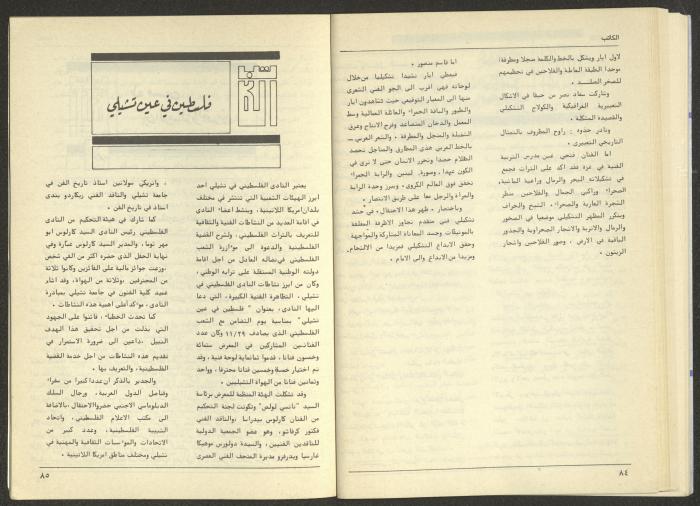 الكاتب
لاول ايار ويشكل بالخط والكلمة منجلا ومطرقة
موحدا الطبقة العاملة والفلاحين في تحطيمهم
للصخر الصلـد .
وشاركت سعاد نصر من حيفا في الاشكال
التعبيرية الغرافيكية والكولاج التشكيلي
والقصيدة المشكلة .
ونادر حذوه : راوح المطروف بالتمثال
التاريخي التعبيري .
اما الفنان فتحي غبن مدرس التربية
الفنية في غزة فقد اكد على التراث فجمع
في تشكيلاته البحر والرمال وراعية الماشية،
الصحراء وراكبي الجمال والفلاحين ، منظر
الشجرة العارية والصحراء ، الشيح والخراف
ويتكرر المظهر التشكيلي موضعيا في الصخور
والرمال والاتربة والاشجار الصحراوية والجذور
الباقية في الارض ، وصور الفلاحين واشجار
الزيتون .
اما قاسم منصور .
فيعطي ايار نشيدا تشكيليا من خلال
لوحاته فهي اقرب الى الجو الفني الشعري
منها الى المعيار التوقيعي حيث تشاهدون ايار
والطيور والباقة الحمراء والعاملة العمالية وسط
المعمل والدخان المتصاعد وفرح الانتاج وعرق
الشغيلة والمنجل والمطرقة . والشعر العربي ــ
بالخط العربي هذي المطارق والمناجل تحصد
الظلام حصدا وتحرر الانسان حتى لا نرى في
الكون عبيدا . وصورة لينين والراية الحمراء
تخفق فوق العالم الكروي . ويبرز وحدة الراية
والمرأة والرجل معا على طريق الانتصار .
وباختصار ، ظهر هذا الاحتفال ، في حشد
تشكيلي فني متقدم تجاوز الاطرقة المغلقة
بالمونيفات وجسد المعاناة المشاركة والمواجهة
وحقق الابداع التشكيلي فمزيدا من الالتحام.
ومزيدا من الابداع والى الامام .
٨٤
الكاتب
فلسطين في عين تشيلي
يعتبر النادى الفلسطيني في تشيلي احد
ابرز الهيئات الشعبية التي تنتشر في مختلف
بلدان امريكا اللاتينية ، وينشط اعضاء النادى
في اقامة العديد من النشاطات الفنية والثقافية
للتعريف بالتراث الفلسطيني ، ولشرح القضية
الفلسطينية والدعوة الى موازرة الشعب
الفلسطيني في نضاله العادل من اجل اقامة
دولته الوطنية المستقلة على ترابه الوطني ،
وكان من ابرز نشاطات النادى الفلسطيني في
تشيلي . التظاهرة الفنية الكبيرة، التي دعا
اليها النادى، بعنوان " فلسطين في عين
تشيلي" بمناسبة يوم التضامن مع الشعب
الفلسطيني الذى يصادف ١١/٢٩ وكان عدد
الفنانين المشاركين في المعرض ستمائة
وخمسون فنانا ، قدموا ثمانماية لوحة فنية ، وقد
تم اختيار خمسة وخمسين فنانا محترفا ، وواحد
وثمانين فنانا من الهواة التشيليين .
وقد تشكلت الهيئة المنظمة للمعرض برئاسة
السيد "نانسي لولص" وتكونت لجنة التحكيم
من الفنان كارلوس بيدرانا ،والناقد الفني
فكتور كرفاتشو، وهو عضو الجمعية الدولية
للناقدين الفنيين ، والسيدة دولورس موهيكا
غارسيا ويدرفرو مديرة المتحف الفني العصرى
، وانريكي سولانين استاذ تاريخ الفن في
جامعة تشيلي والناقد الفني ريكاردو بندى
استاذ في تاريخ الفن .
كما شارك في هيئة التحكيم من النادى
الفلسطيني رئيس النادى السيد كارلوس ابو
مهر توما ، والمدير السيد كارلوس عمارة وفي
نهاية الحفل الذى حضره اكثر من الفي شخص
،وزعت جوائز مالية على الفائزين وكانوا ثلاثة
من المحترفين ،وثلاثة من الهواة، وقد اشار
عميد كلية الفنون في جامعة تشيلي بمبادرة
النادى، مؤكدا على اهمية هذه النشاطات .
كما تحدث الخطباء ، فاثنوا على الجهود
التي بذلت من اجل تحقيق هذا الهدف
النبيل .داعين الى ضرورة الاستمرار في
تقديم هذه النشاطات من اجل خدمة القضية
الفلسطينية، والتعريف بها .
والجدير بالذكر ان عددا كبيرا من سفراء
وقناصل الدول العربية، ورجال السلك
الدبلوماسي الاجنبي حضروا الاحتفال،بالاضافة
الى مكتب الاعلام الفلسطيني، واتحاد
الشبيبة الفلسطينية، وعدد كبير من
الاتحادات والمؤسسات الثقافية والمهنية في
تشيلي ومختلف مناطق امريكا اللاتينية .
٨٥